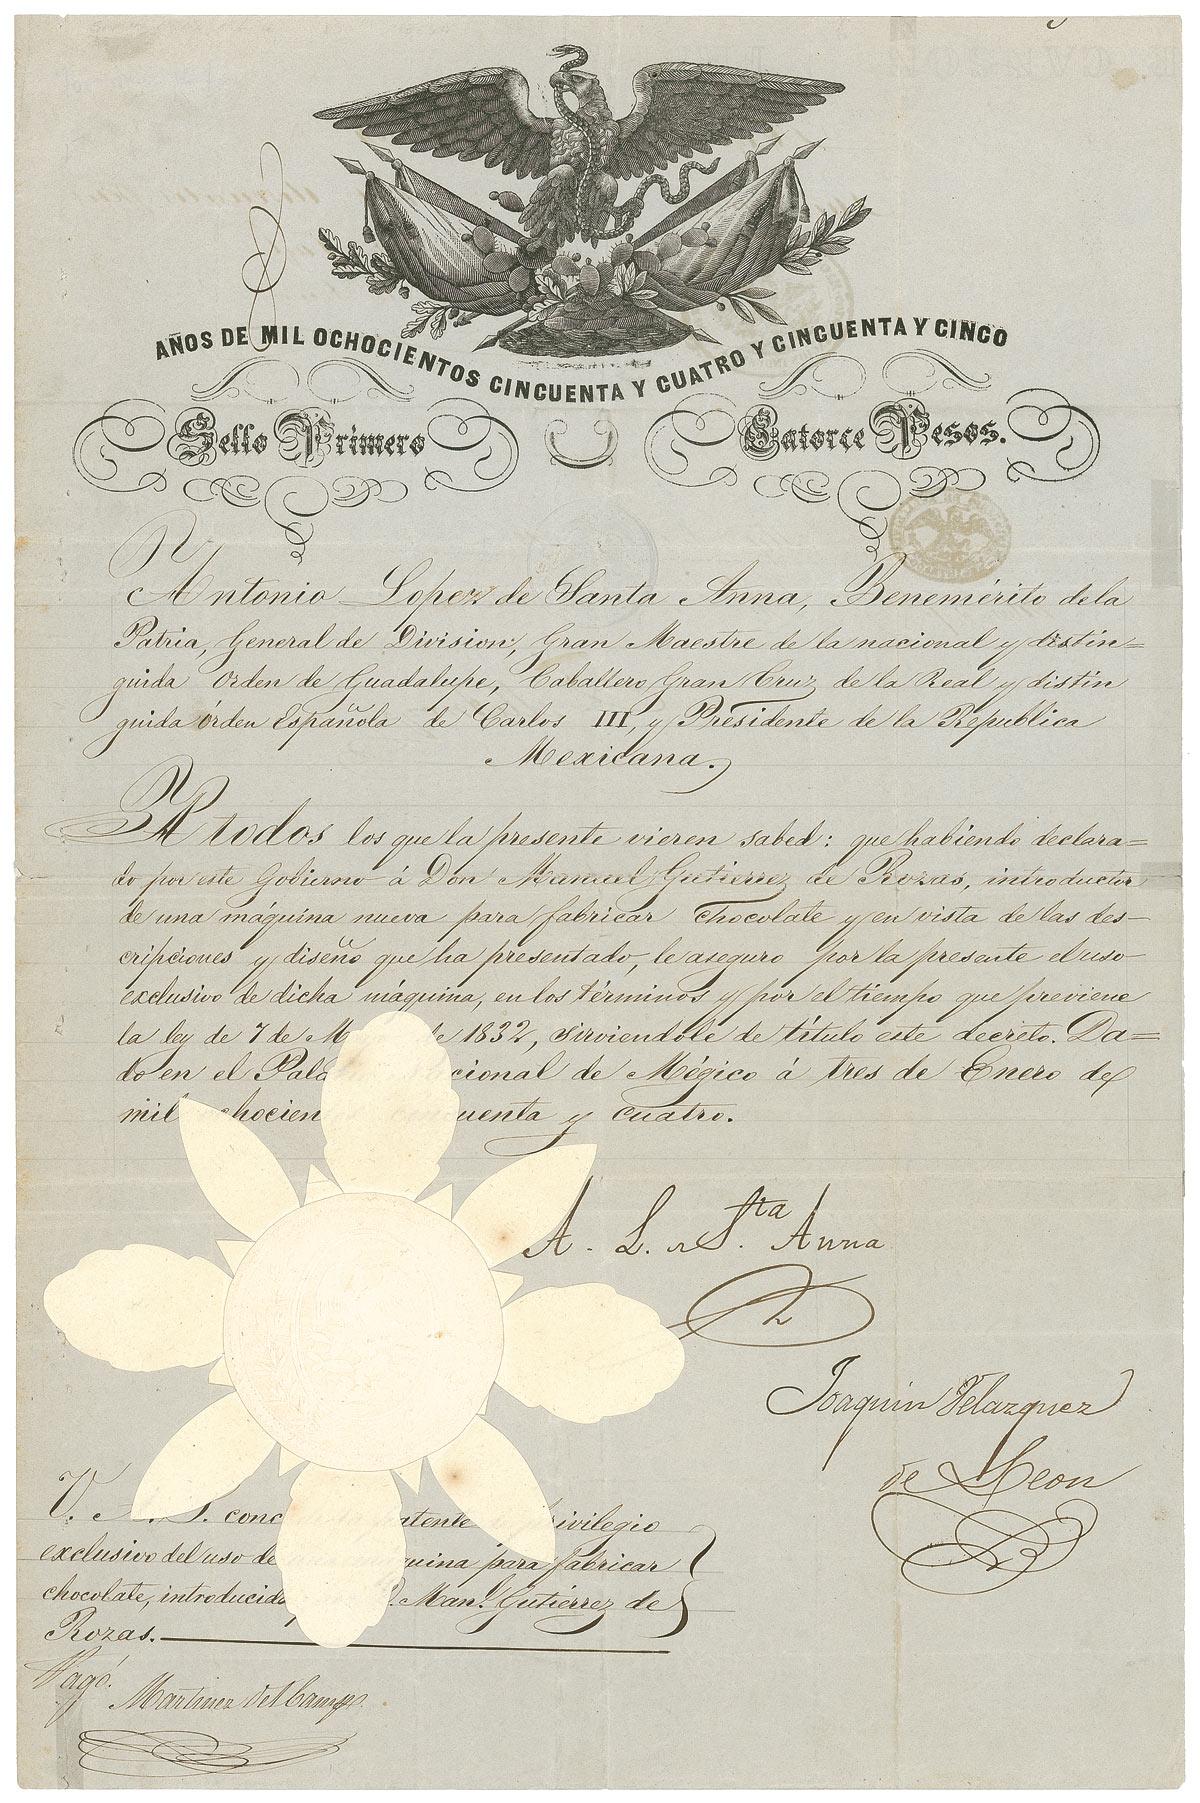 AÑOS DE MIL OCHOCIENTOS CINCUENTA Y CUATRO Y CINCUENTA Y CINCO
Sello Primero Catorce Pesos.
Antonio Lopez de Santa Anna, Benemérito de la
Patria, General de Division, Gran Maestre de la nacional y distin=
guida Orden de Guadalupe, Caballero Gran Cruz de la Real y distin
guida órden Española de Carlos III, y Presidente de la Republica
Mexicana.
A todos los que la presente vieren sabed: que habiendo declara=
do por este Gobierno á Don Manuel Gutierrez de Rozas, introductor
de una máquina nueva para fabricar chocolate y en vista de las des-
cripciones y diseño que ha presentado, le aseguro por la presente el uso
exclusivo de dicha máquina, en los términos y por el tiempo que previene
la ley de 7 de M e 1832, sirviendole de título este decreto. Da=
do en el Pala cional de Mégico á tres de Enero de
mil chocien cuenta y cuatro.
A. L. de Sta. Anna
Joaquin Velazquez
de Leon
V. A. S. conc atente rivilegio
exclusivo del uso de quina para fabricar
chocolate, introducida D. Manl. Gutiérrez de
Rozas.
Pagó.
Martinez del Campo